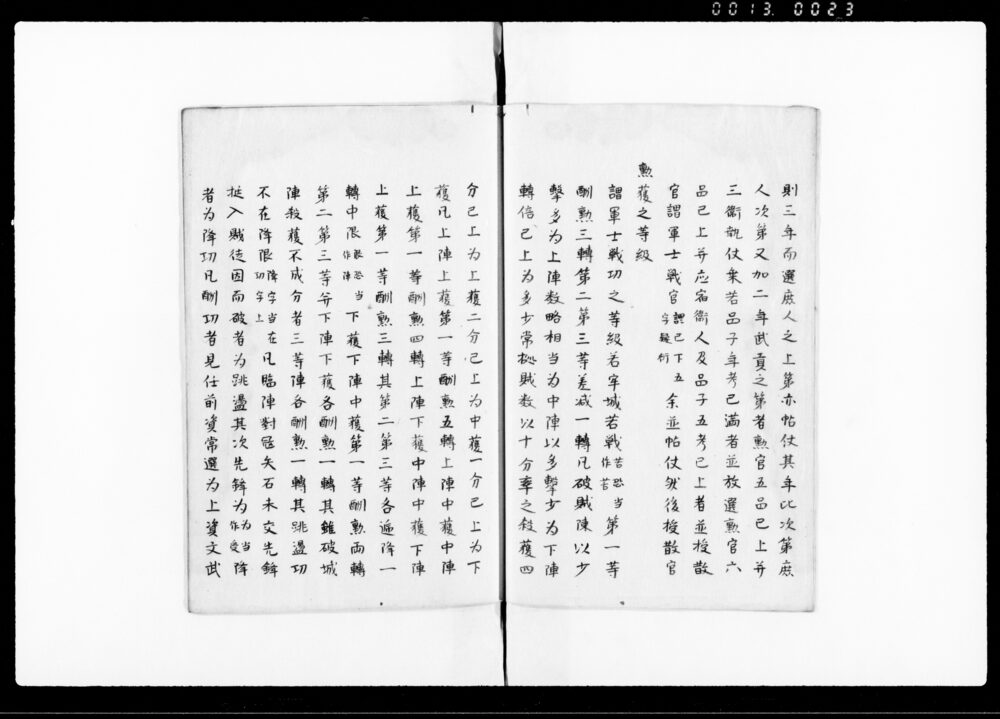 0013. 0023
則三年而選庶人之上第亦帖仗其年比次第庶
人次第又加二年武貢之第者勲官五品已上并
三衛執仗乗若品子年考已満者並放選勲官六
品已上并応宿衛人及品子五考已上者並授散
官謂軍士戦官謂已下五字疑衍余並帖仗然後授散官
勲獲之等級
謂軍士戦功之等級若牢城若戦苦恐当作苦第一等
酬勲三轉第二第三等差减一轉凡破賊陳以少
擊多为上陣数略相当为中陣以多擊少为下陣
轉倍已上为多少常拠賊数以十分率之殺獲四
分已上为上獲二分已上为中獲一分已上为下
獲凡上陣上獲第一等酬勲五轉上陣中獲中陣
上獲第一等酬勲四轉上陣下獲中陣中獲下陣
上獲第一等酬勲三轉其第二第三等各遞降一
轉中限恐当作陣下獲下陣中獲第一等酬勲両轉
第二第三等并下陣下獲各酬勲一轉其雖破城
陣殺獲不成分者三等陣各酬勲一轉其跳盪功
不在降限降字当在功字上凡臨陣對冦矢石未交先鋒
挺入賊徒因而破者为跳盪其次先鋒为为当作受降
者为降功凡酬功者見任前資常選为上資文武